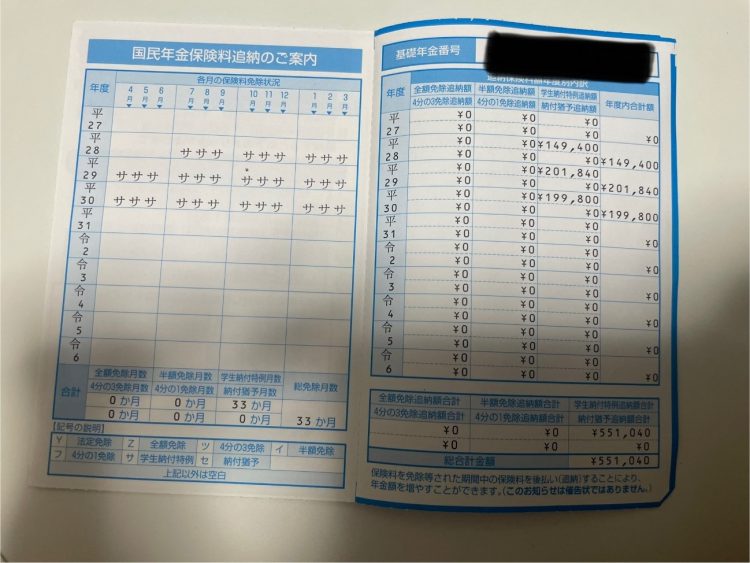 国民年金保険料追納のご案内
年度 各月の保険料免除状況
4月 5月 6月 7月 8月 9月 10月 11月 12月 1月 2月 3月
平27
平28 ササス ササス ササス
平29 ササス ササス ササス ササス
平30 ササス ササス ササス ササス
平31
令2
令3
令4
令5
令6
合計
全額免除月数 半額免除月数 学生納付特例月数 総免除月数
4分の3免除月数 4分の1免除月数 納付猶予月数
0か月 0か月 33か月
0か月 0か月 0か月 33か月
【記号の説明】
Y 法定免除 Z 全額免除 ツ 4分の3免除 イ 半額免除
フ 4分の1免除 サ 学生納付特例 セ 納付猶予
上記以外は空白
基礎年金番号
年度
全額免除追納額 半額免除追納額 学生納付特例追納額 年度内合計額
4分の3免除追納額 4分の1免除追納額 納付猶予追納額
平27 ¥0 ¥0 ¥0
¥0 ¥0 ¥0 ¥0
平28 ¥0 ¥0 ¥149,400
¥0 ¥0 ¥0 ¥149,400
平29 ¥0 ¥0 ¥201,840
¥0 ¥0 ¥0 ¥201,840
平30 ¥0 ¥0 ¥199,800
¥0 ¥0 ¥0 ¥199,800
平31 ¥0 ¥0 ¥0
¥0 ¥0 ¥0 ¥0
令2 ¥0 ¥0 ¥0
¥0 ¥0 ¥0 ¥0
令3 ¥0 ¥0 ¥0
¥0 ¥0 ¥0 ¥0
令4 ¥0 ¥0 ¥0
¥0 ¥0 ¥0 ¥0
令5 ¥0 ¥0 ¥0
¥0 ¥0 ¥0 ¥0
令6 ¥0 ¥0 ¥0
¥0 ¥0 ¥0 ¥0
全額免除追納額合計 半額免除追納額合計 学生納付特例追納額合計
4分の3免除追納額合計 4分の1免除追納額合計 納付猶予追納額合計
¥0 ¥0 ¥551,040
¥0 ¥0 ¥0
総合計金額 ¥551,040
保険料を免除等された期間中の保険料を後払い(追納)することにより、
年金額を増やすことができます。(このお知らせは催告状ではありません。)